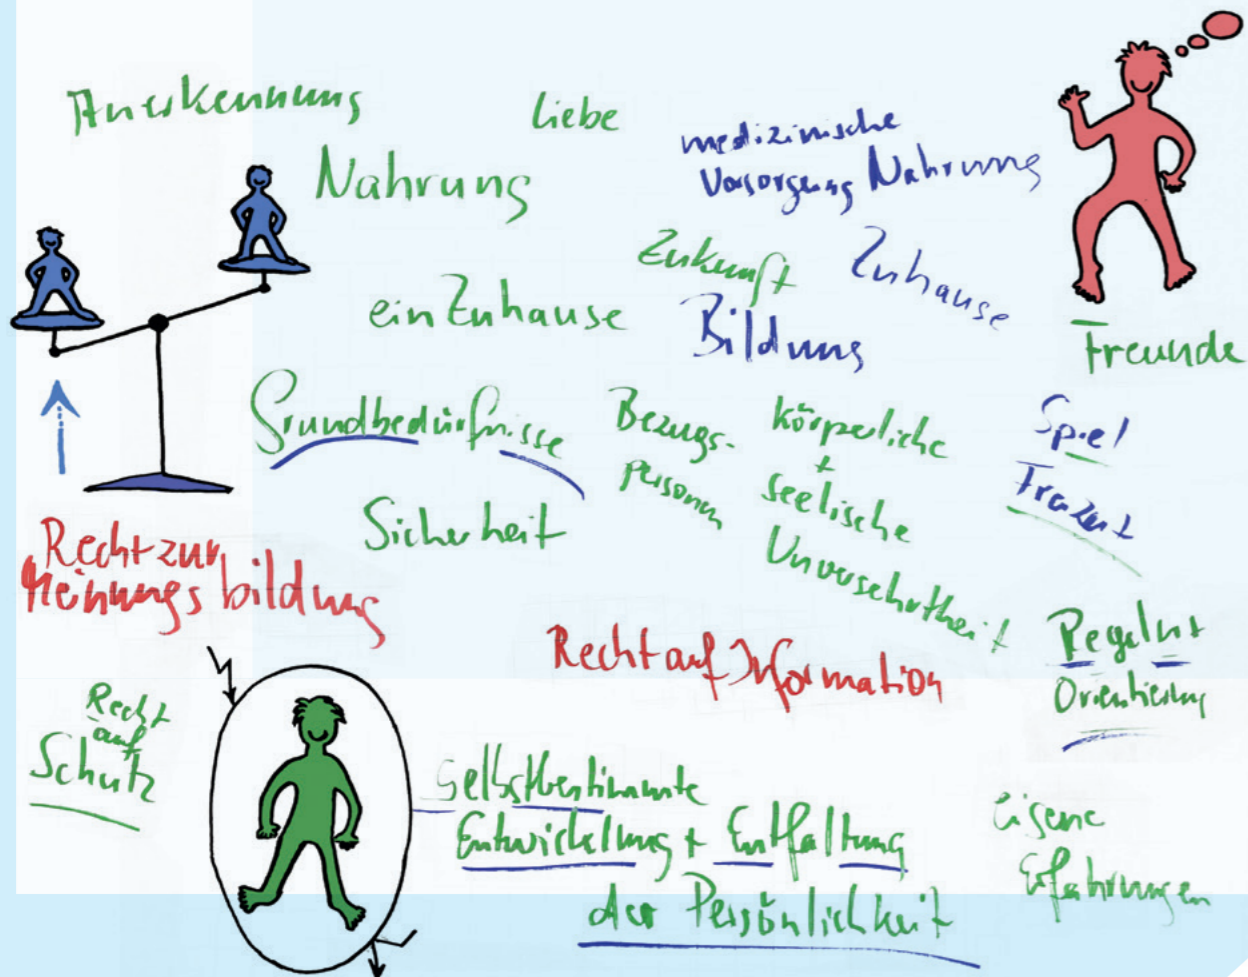 Anerkennung
Liebe
medizinische
Versorgung
Nahrung
Nahrung
Zukunft
Zuhause
ein Zuhause
Bildung
Freunde
Grundbedürfnisse
Bezugs-
personen
körperliche
+
seelische
Unversehrtheit
Spiel
Freizeit
Sicherheit
Recht zur
Meinungsbildung
Recht auf Information
Regeln +
Orientierung
Recht
auf
Schutz
Selbstbestimmte
Entwicklung + Entfaltung
der Persönlichkeit
eigene
Erfahrungen